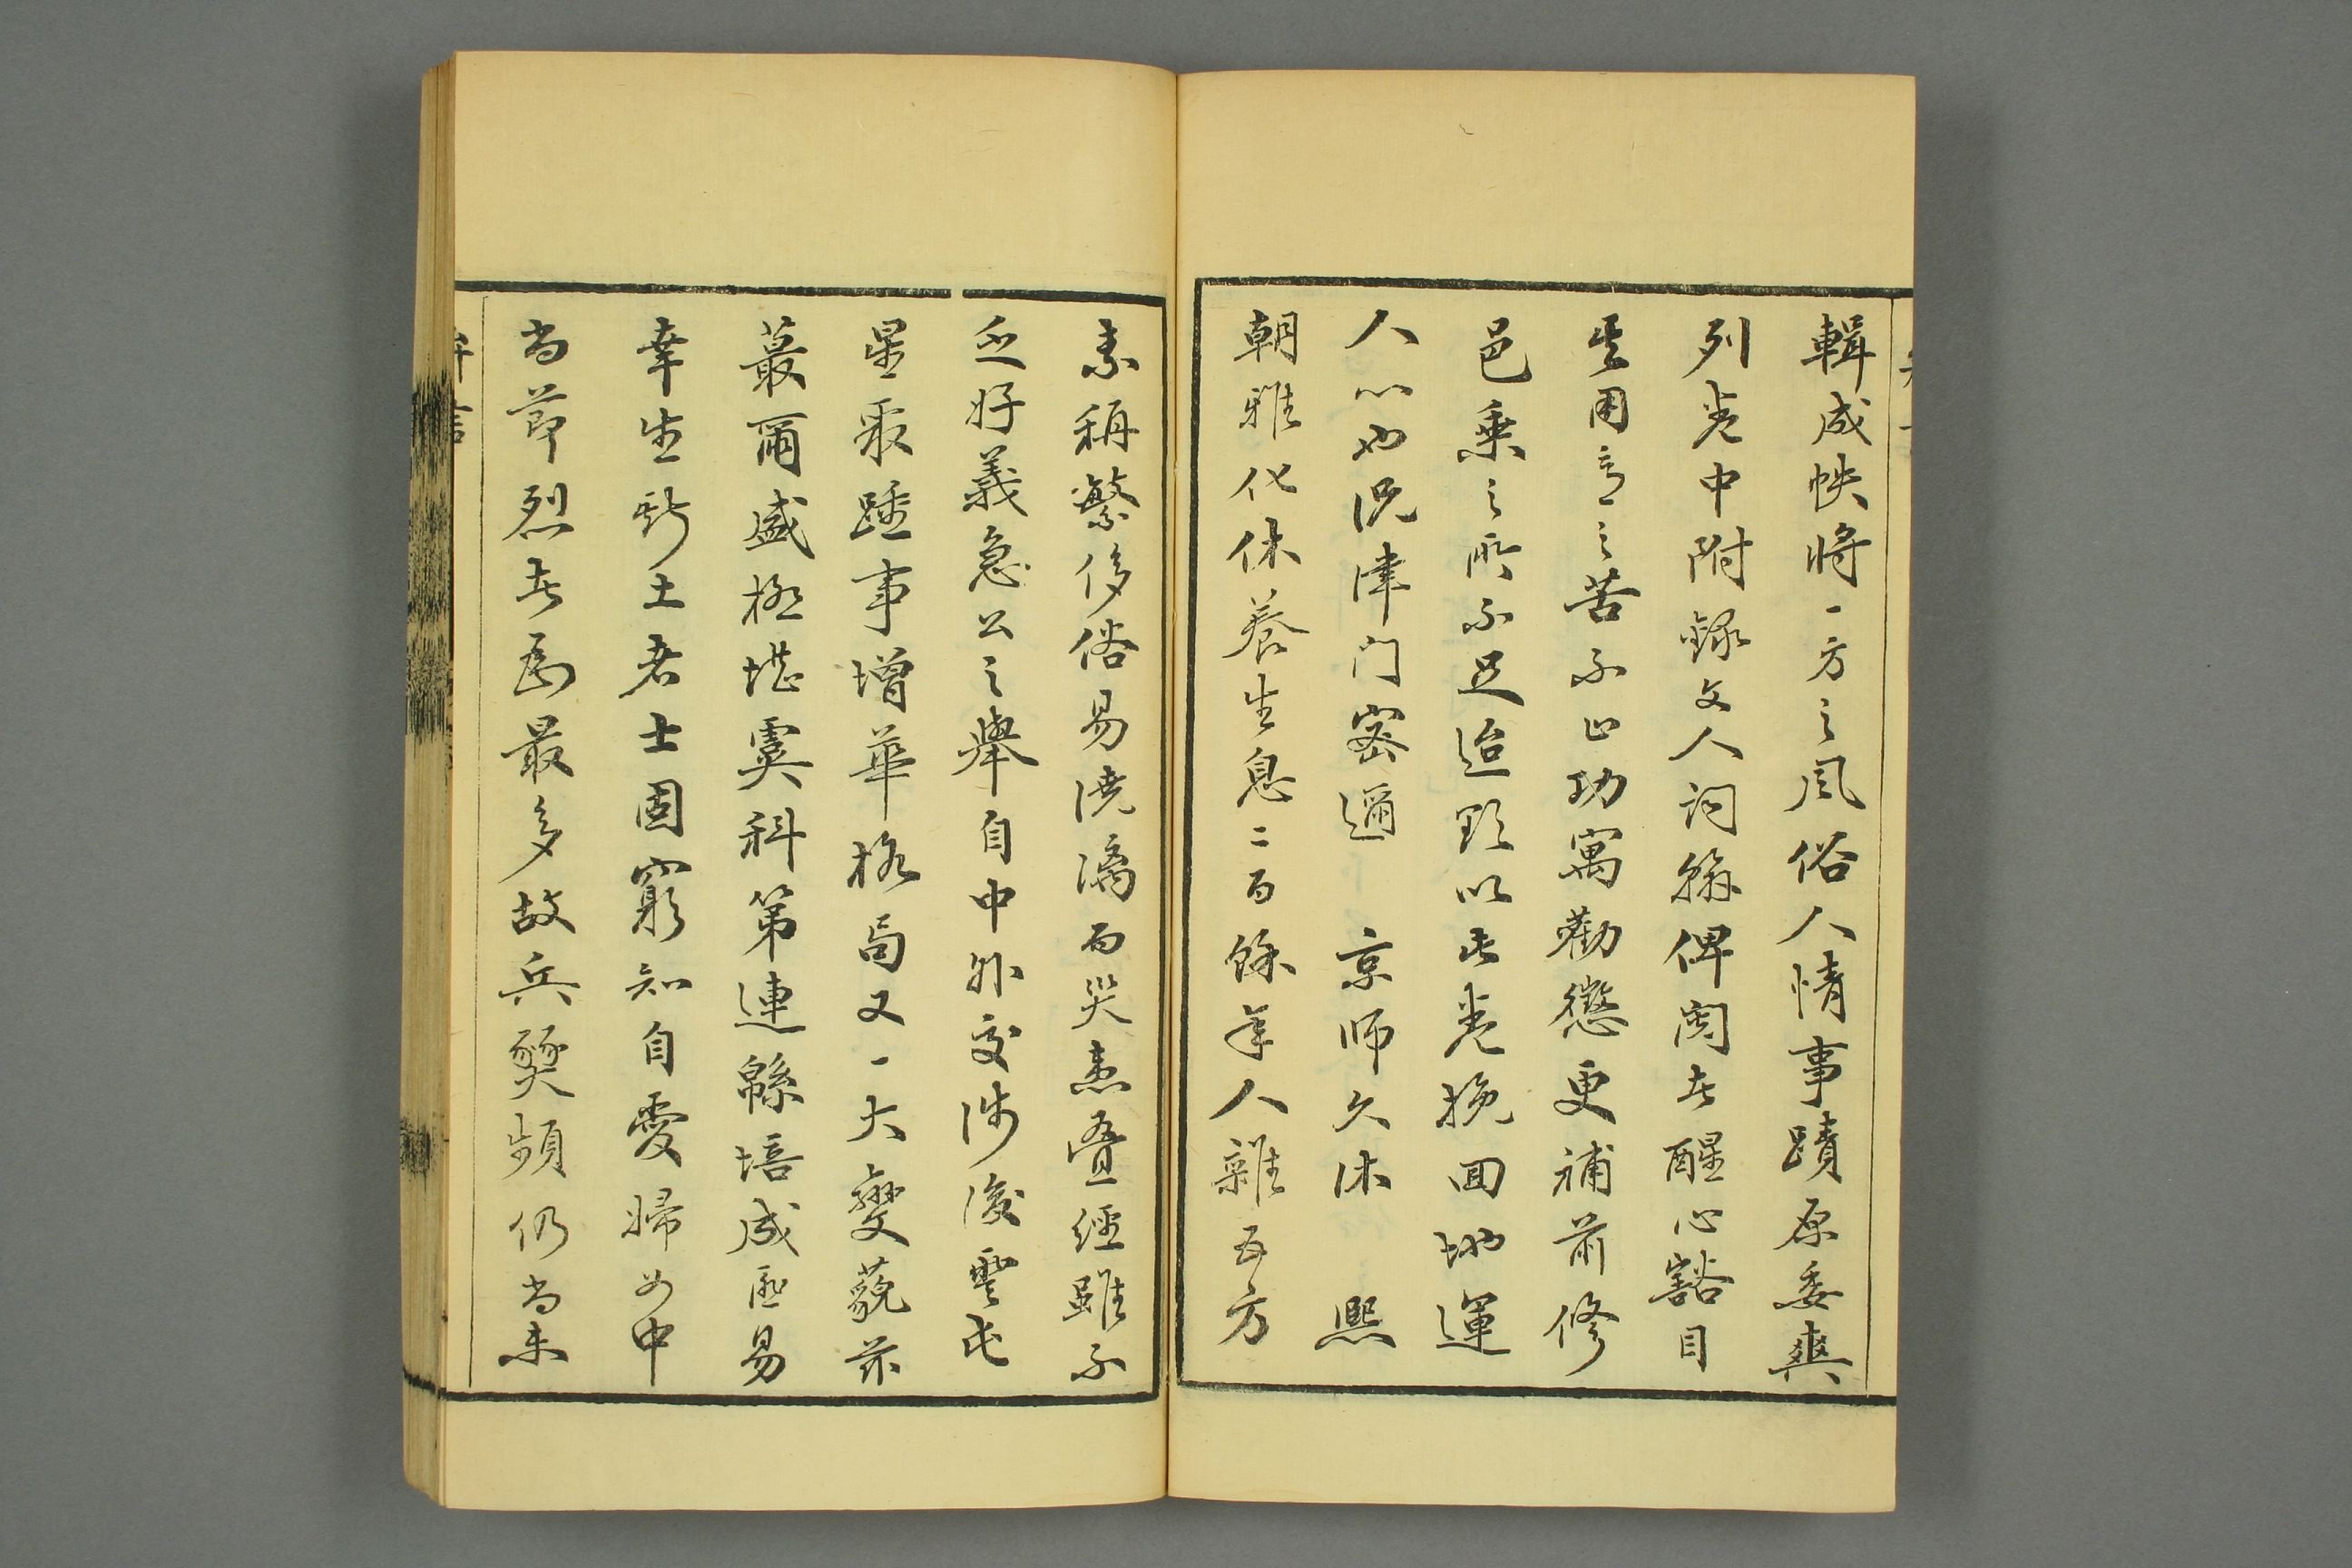 輯成帙將一方之風俗人情事蹟原委爽
列卷中附錄文人詞翰俾閱者醒心豁目
其用意之苦不止功寓勸懲更補前修
邑乘之所不足迨欲以此卷挽回地運
人心也況津門密邇 京師久沐 熙
朝雅化休養生息二百餘年人雜五方
素稱繁侈俗易澆漓而災患疊經雖不
乏好義急公之舉自中外交涉後雲屯
星聚踵事增華格局又一大變藐茲
蕞爾盛極堪虞科第連緜培成匪易
幸生斯土者士固窮知自愛婦女中
尚節烈者為最多故兵燹頻仍尚未
弁言